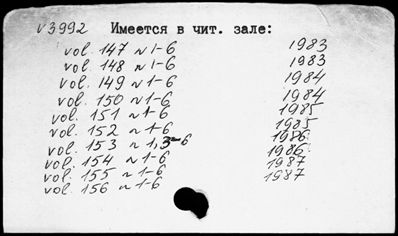 v 3992 Имеется в чит. зале:
vol. 147 n 1-6 1983
vol. 148 n 1-6 1983
vol. 149 n 1-6 1984
vol. 150 n 1-6 1984
vol. 151 n 1-6 1985
vol. 152 n 1-6 1985
vol. 153 n 1,3-6 1986
vol. 154 n 1-6 1986
vol. 155 n 1-6 1987
vol. 156 n 1-6 1987